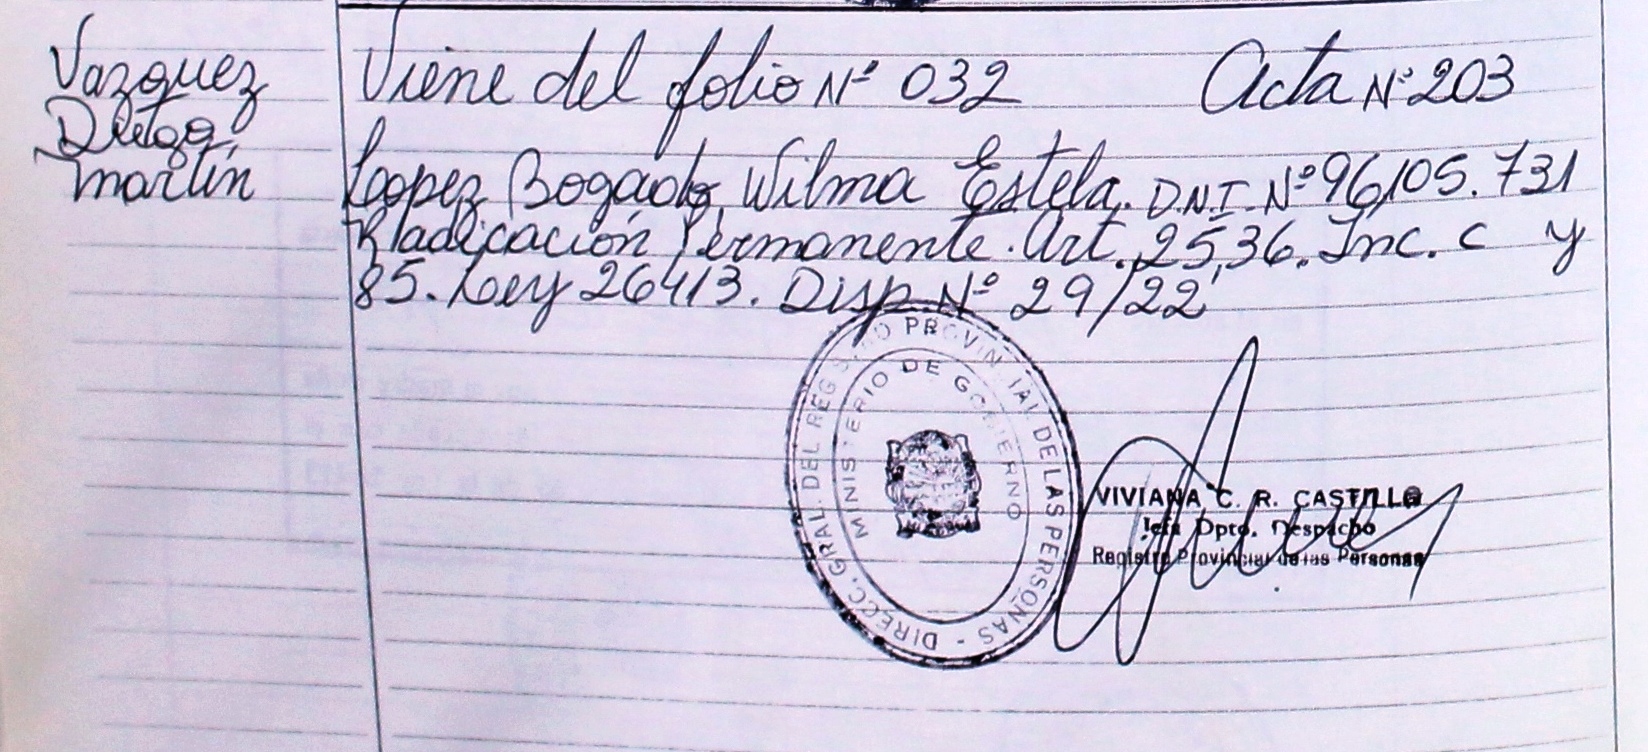 Vazquez
Diego
Martín
Viene del folio Nº 032 Acta Nº 203
Lopez Bogado, Wilma Estela. D.N.I. Nº 96,105.731
Radicación Permanente. Art. 25,36. Inc. c y
85. Ley 26413. Disp. Nº 29/22
DIRECC. GRAL. DEL REGISTRO PROVINCIAL DE LAS PERSONAS -
MINISTERIO DE GOBIERNO
VIVIANA C. R. CASTILLO
Jefa Dpto. Despacho
Registro Provincial de las Personas